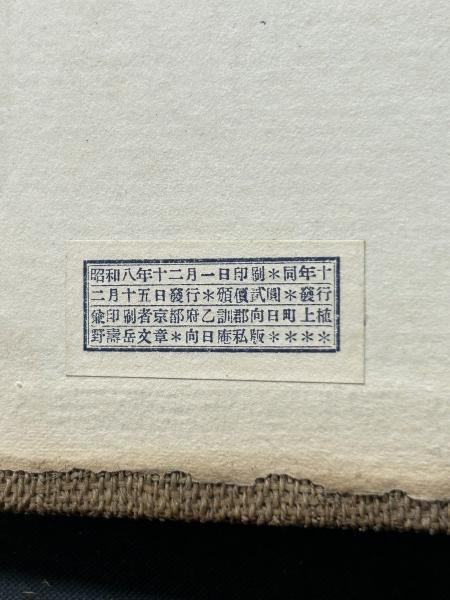 昭和八年十二月一日印刷＊同年十
二月十五日發行＊頒價貳圓＊發行
兼印刷者京都府乙訓郡向日町上植
野壽岳文章＊向日庵私版＊＊＊＊